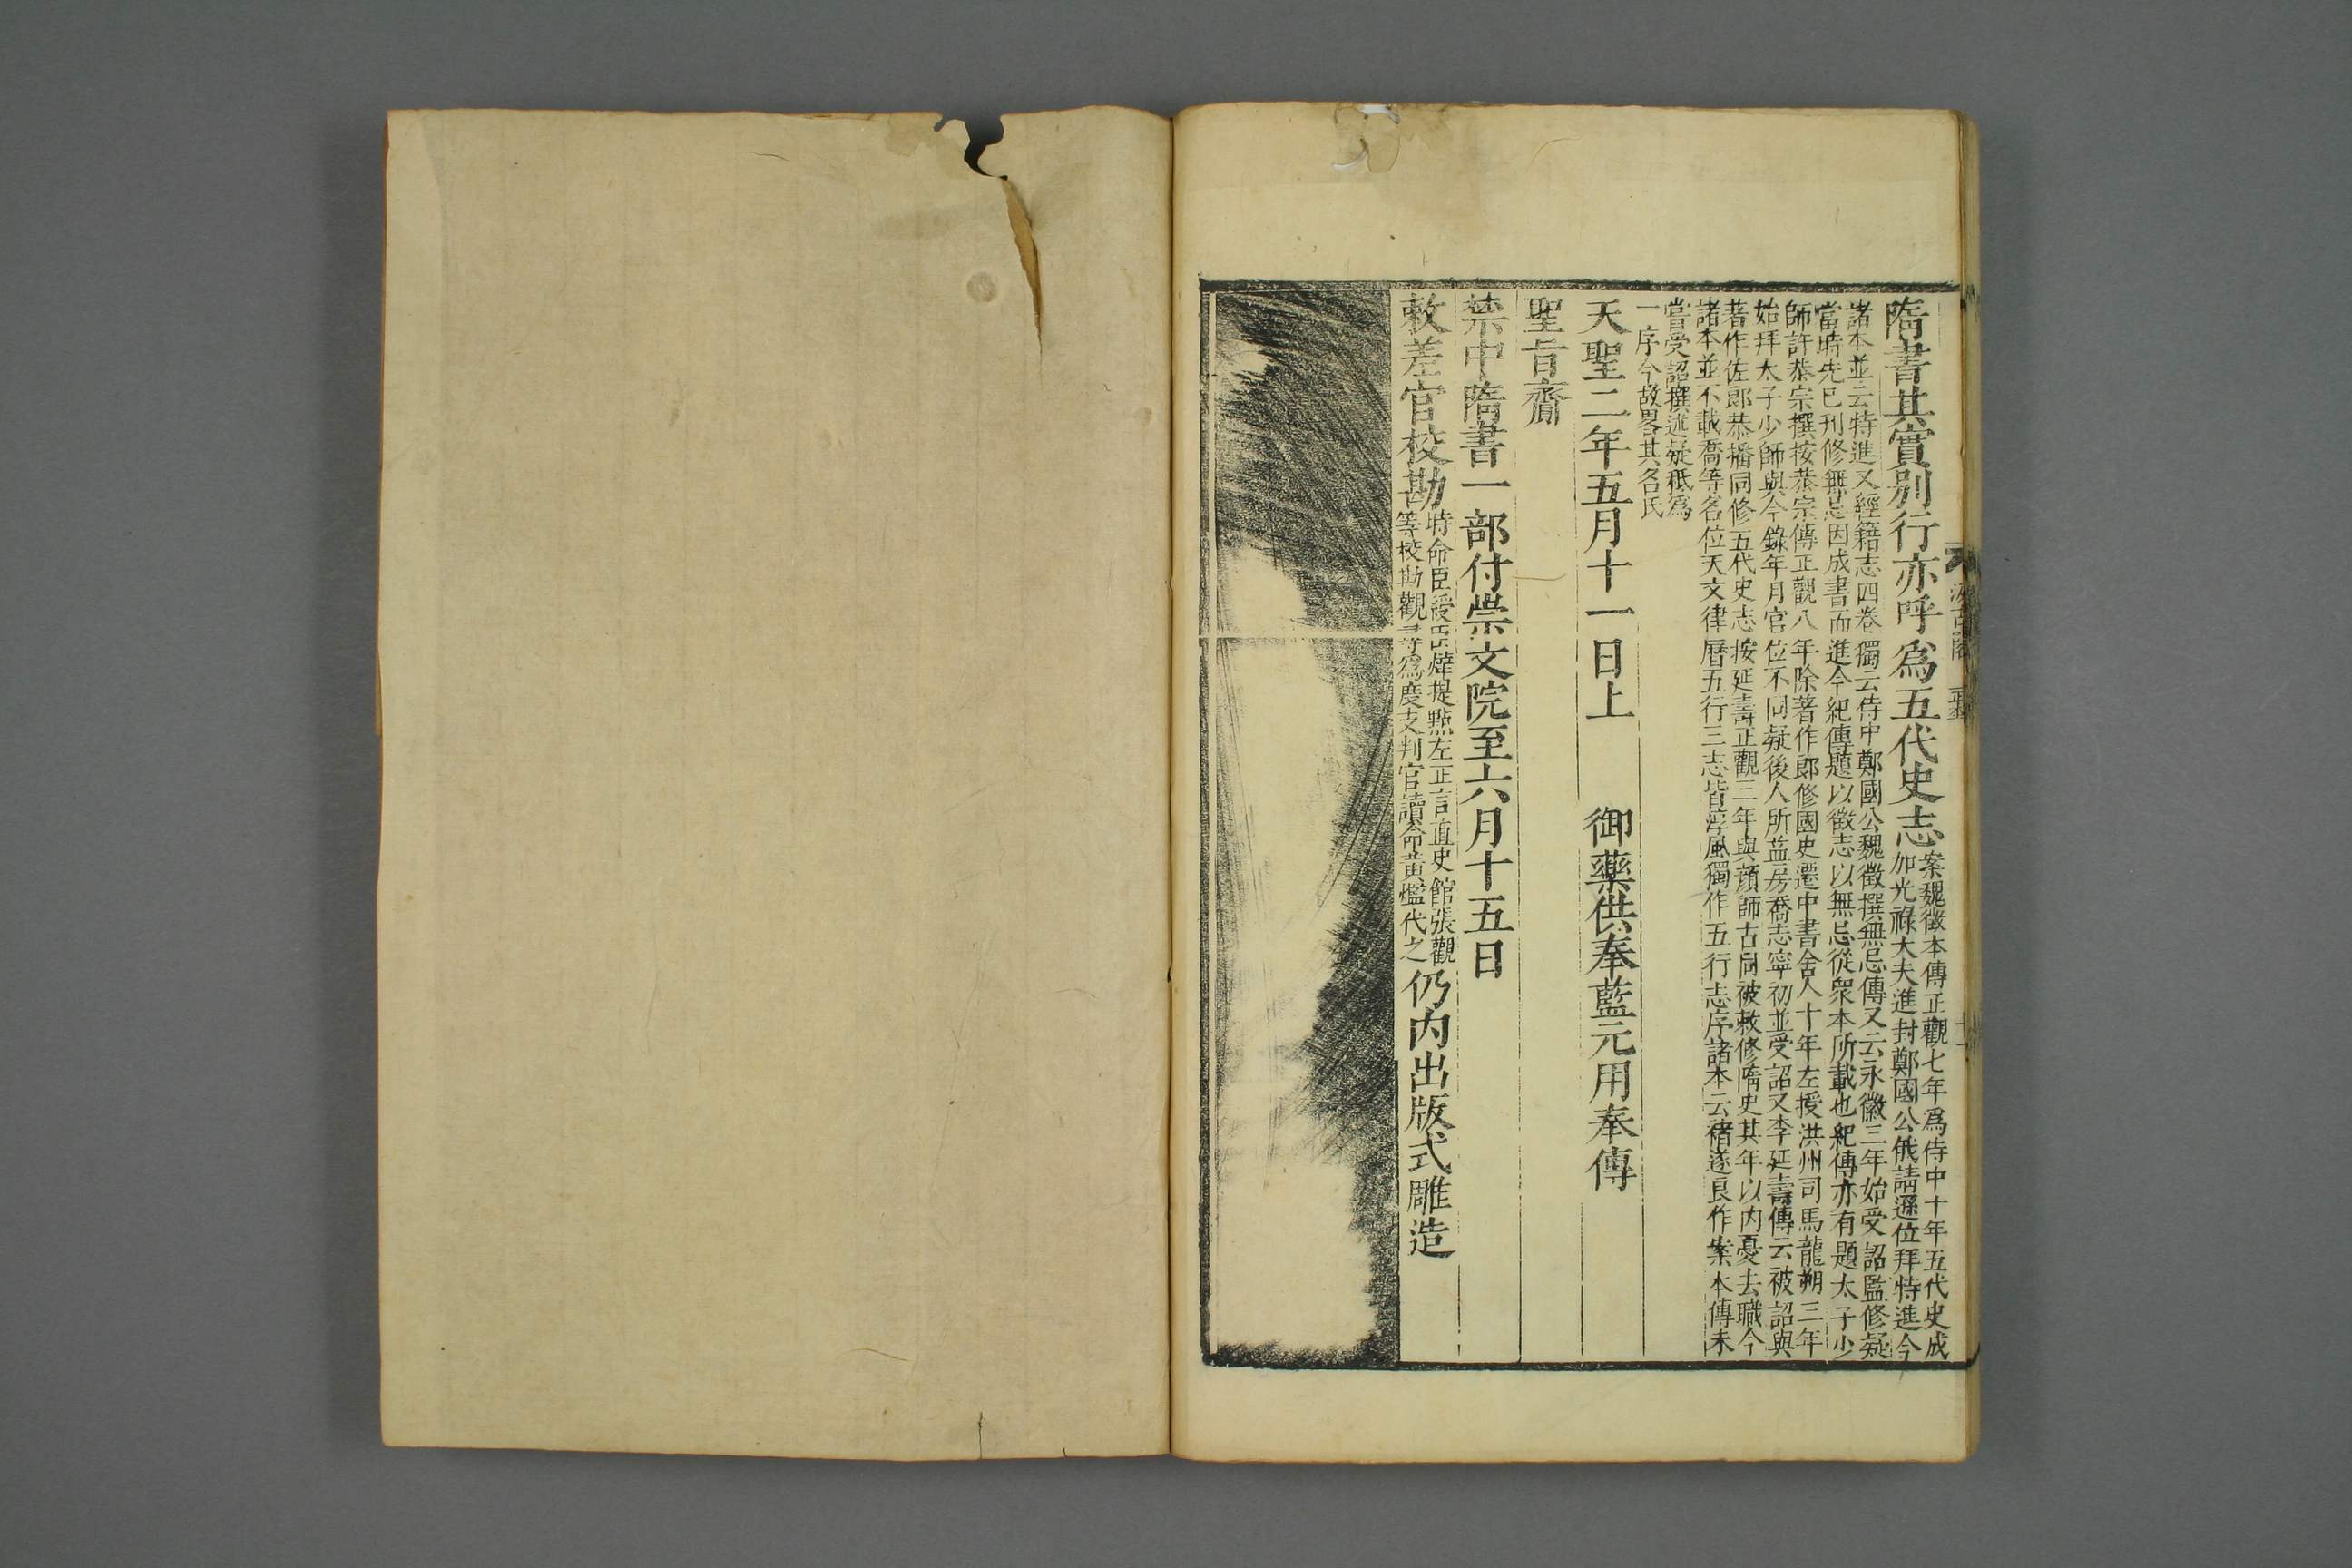 隋書其實別行亦呼爲五代史志
案魏徵本傳正觀七年爲侍中十年五代史成
加光祿大夫進封鄭國公俄請遜位拜特進今
諸本並云特進又經籍志四卷獨云侍中鄭國公魏徵撰無忌傳又云永徽三年始受詔監修疑
當時先已刊修無忌因成書而進今紀傳題以徵志以無忌從衆本所載也紀傳亦有題太子少
師許恭宗撰按恭宗傳正觀八年除著作郎修國史遷中書舍人十年左授洪州司馬龍朔三年
始拜太子少師與今錄年月官位不同疑後人所益房喬志寧初並受詔又李延壽傳云被詔與
著作佐郎恭播同修五代史志按延壽正觀三年與顏師古同被敕修隋史其年以內憂去職今
諸本並不載喬等名位天文律曆五行三志皆淳風獨作五行志序諸本云褚遂良作案本傳未
嘗受詔撰述疑秪爲
一序今故畧其名氏
天聖二年五月十一日上　御藥供奉藍元用奉傳
聖旨齎
禁中隋書一部付崇文院至六月十五日
敕差官校勘
時命臣綬臣燁提點左正言直史館張觀
等校勘觀尋爲度支判官讀命黃鑑代之
仍內出版式雕造